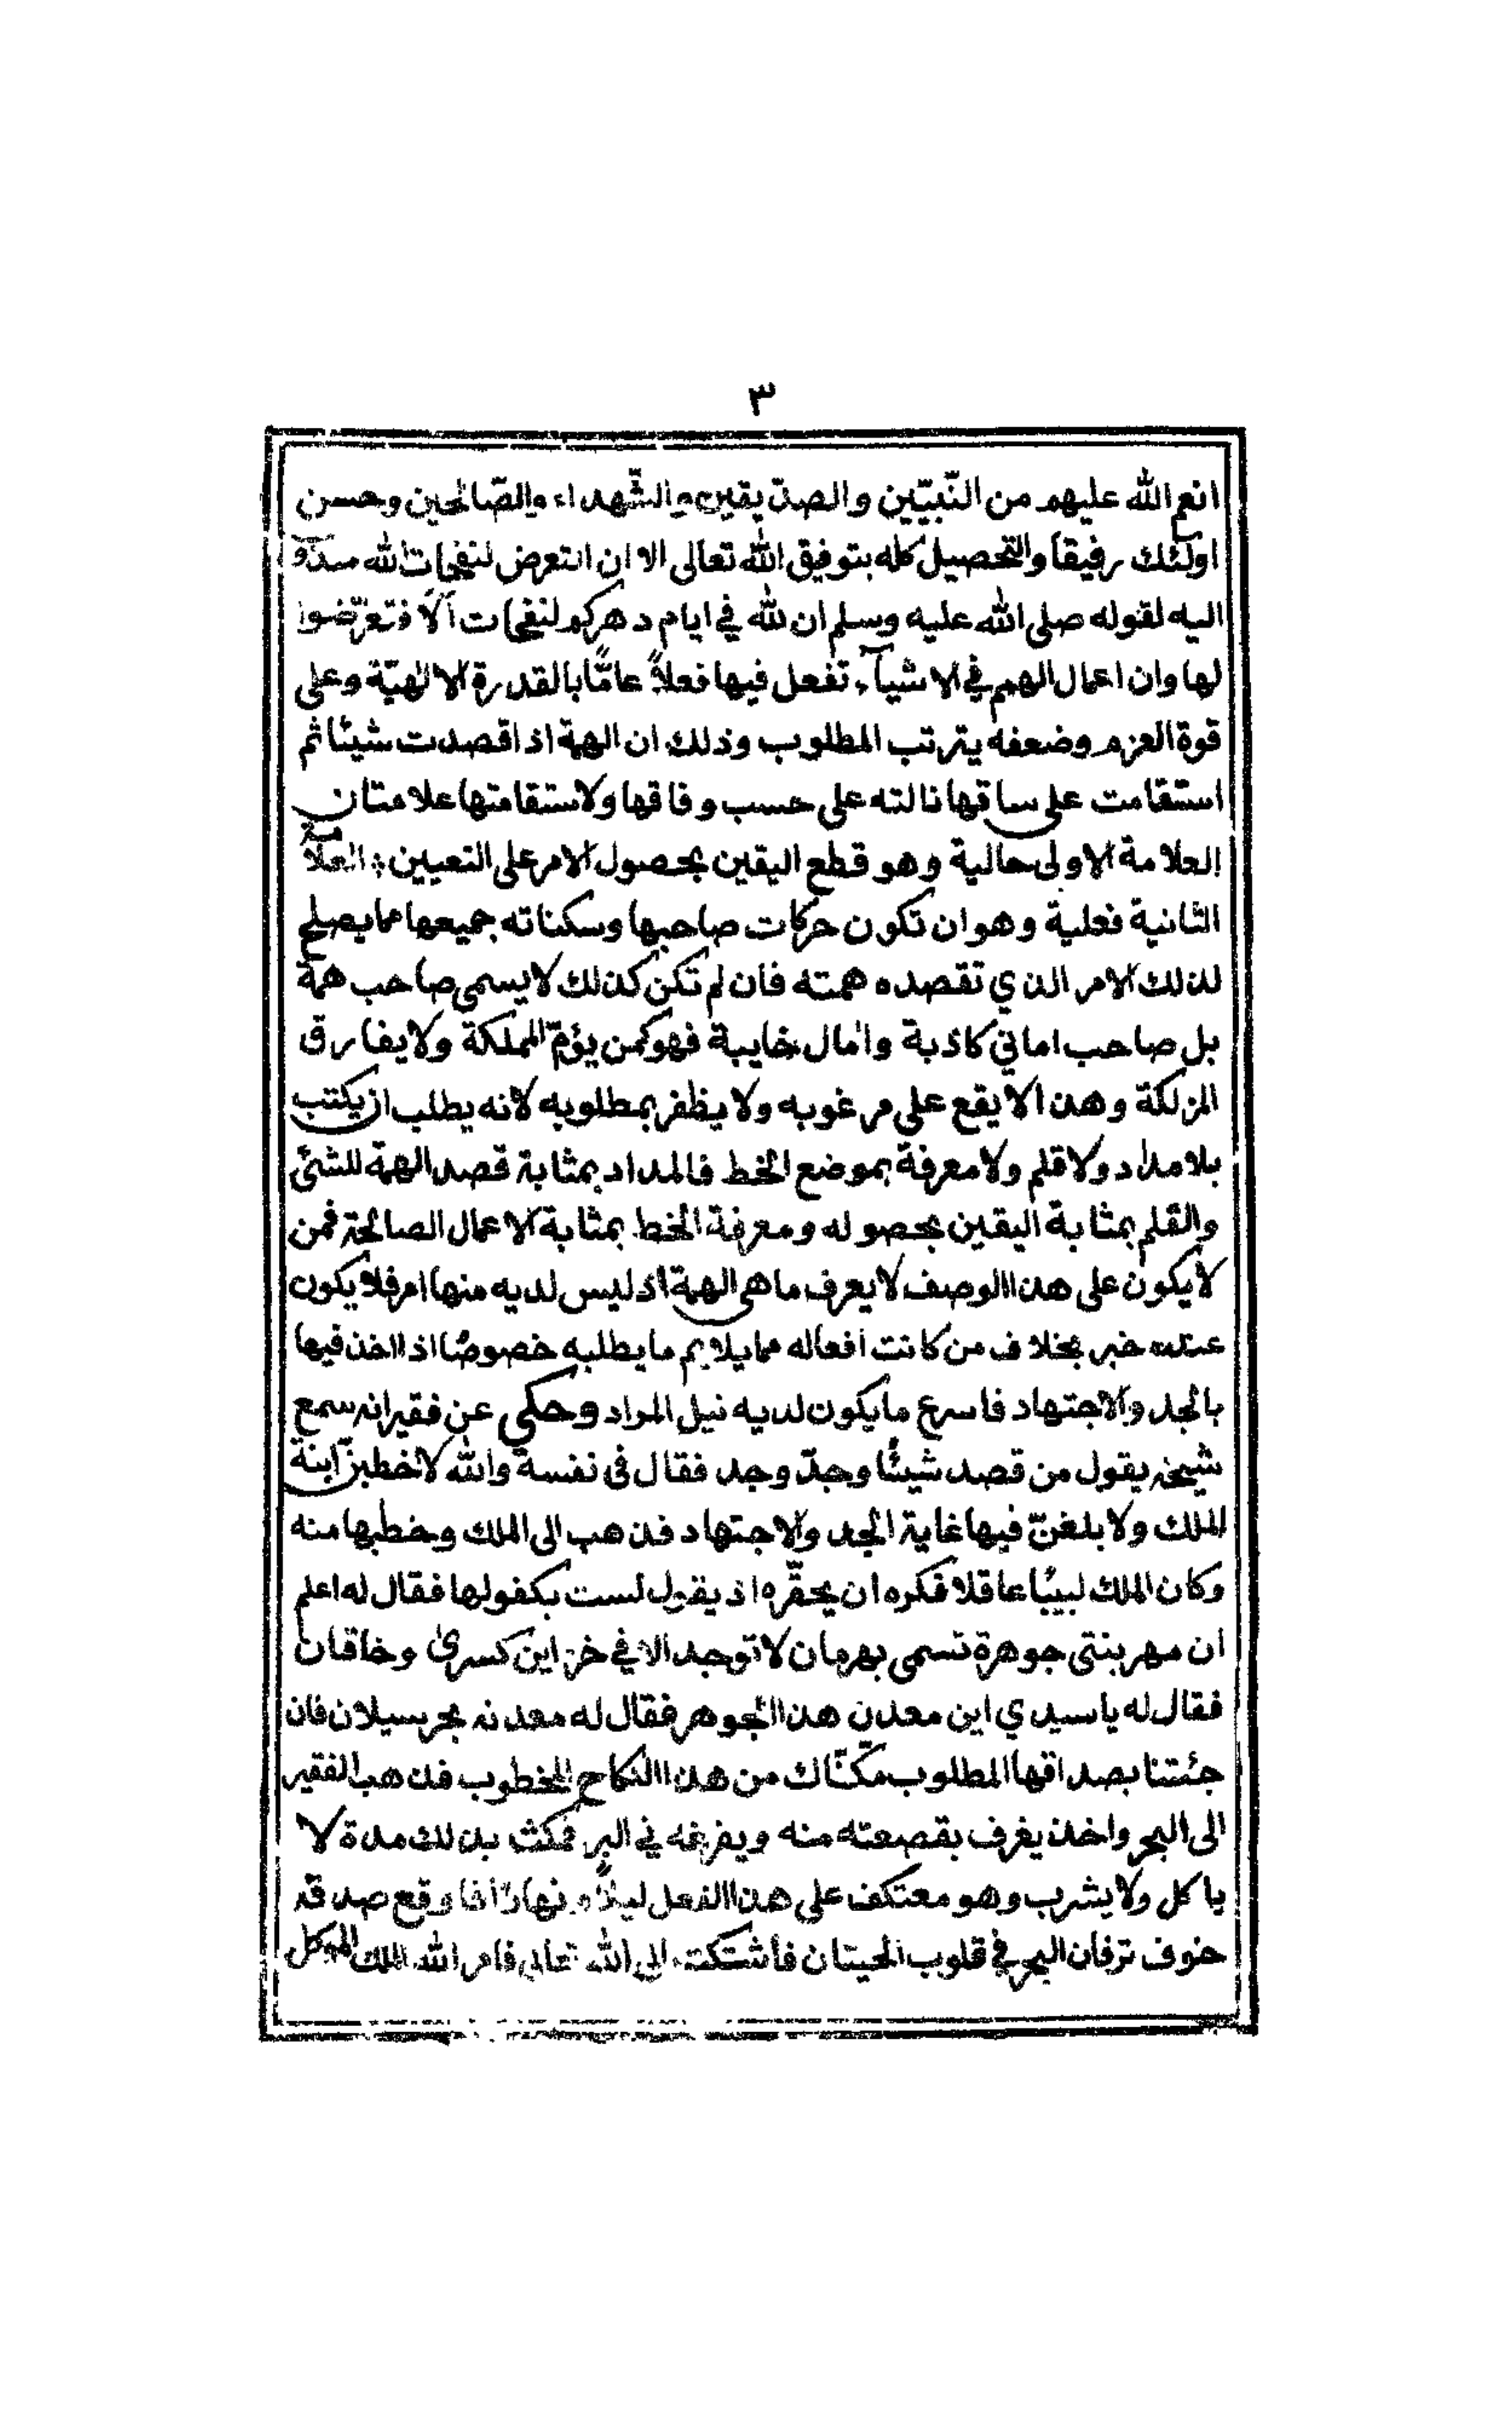 ٣
انعم الله عليهم من النّبيّين والصدّيقين والشّهداء والصّالحين وحسن
اولٓئك رفيقا والتحصيل كله بتوفيق الله تعالى الا ان التعرض لنفحات الله
اليه لقوله صلى الله عليه وسلم ان لله في ايام دهركم لنفحات ألا فتعرّضوا
لها وان اعمال الهمم في الاشيآء تفعل فيها فعلاً عامًّا بالقدرة الالٰهيّة وعلى
قوة العزم وضعفه يترتب المطلوب وذلك ان الهمة اذا قصدت شيئا ثم
استقامت على ساقها نالته على حسب وفاقها ولاستقامتها علامتان
العلامة الاولى حالية وهو قطع اليقين بحصول الامر على التعيين: العلامة
الثانية فعلية وهو ان تكون حركات صاحبها وسكناته جميعها مما يصلح
لذلك الامر الذي تقصده همته فان لم تكن كذلك لا يسمى صاحب همة
بل صاحب اماني كاذبة واٰمال خايبة فهو كمن يؤمّ المملكة ولا يفارق
المزلكة وهذا لا يقع على مرغوبه ولا يظفر بمطلوبه لانه يطلب ان يكتب
بلا مداد ولا قلم ولا معرفة بموضع الخط فالمداد بمثابة قصد الهمة للشئ
والقلم بمثابة اليقين بحصوله ومعرفة الخط بمثابة الاعمال الصالحة فمن
لا يكون على هذا الوصف لا يعرف ما هى الهمة اذ ليس لديه منها امر فلا يكون
عنده خبر بخلاف من كانت افعاله مما يلايم ما يطلبه خصوصًا اذا اخذ فيها
بالجد والاجتهاد فاسرع ما يكون لديه نيل المراد وحكى عن فقير انه سمع
شيخه يقول من قصد شيئًا وجدّ وجد فقال فى نفسه والله لاخطبنّ ابنة
الملك ولابلغنّ فيها غاية الجد والاجتهاد فذهب الى الملك وخطبها منه
وكان الملك لبيبًا عاقلا فكره ان يحقّره اذ يقول لست بكفو لها فقال له اعلم
ان مهر بنتى جوهرة تسمى بهرمان لا توجد الا في خزاين كسرىٰ وخاقان
فقال له يا سيدي اين معدن هذا الجوهر فقال له معدنه بحر سيلان فان
جئتنا بصداقها المطلوب مكّنّاك من هذا النكاح المخطوب فذهب الفقير
الى البحر واخذ يغرف بقصعته منه ويفرغه في البر فمكث بذلك مدة لا
ياكل ولا يشرب وهو معتكف على هذا الفعل ليلاً ونهارًا فاوقع صدقه
خوف نزفان البحر في قلوب الحيتان فاشتكت الى الله تعالى فامر الله الملك الموكل